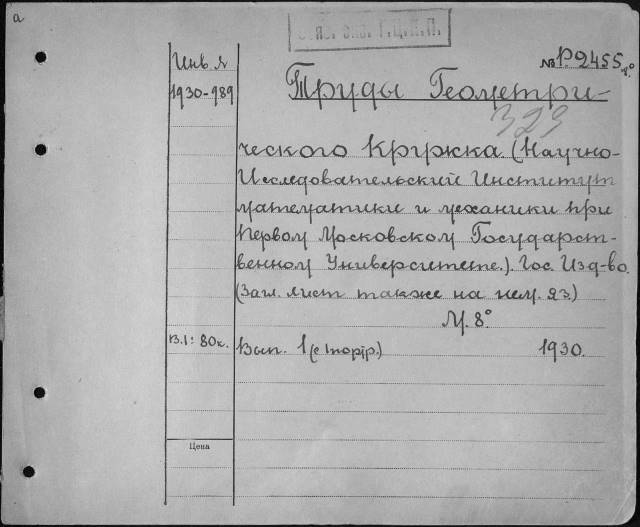 а
Обяз. экз. Г.Ц.К.П.
Инв. №
№ Р.2455 8°
1930-989
Труды Геометри-
323
ческого Кружка. (Научно-
Исследовательский Институт
математики и механики при
Первом Московском Государст-
венном Университете.). Гос. Изд-во.
(Загл. лист также на нем. яз.)
М. 8°
В.1: 80к.
Вып. 1 (с 1 портр.) 1930.
Цена